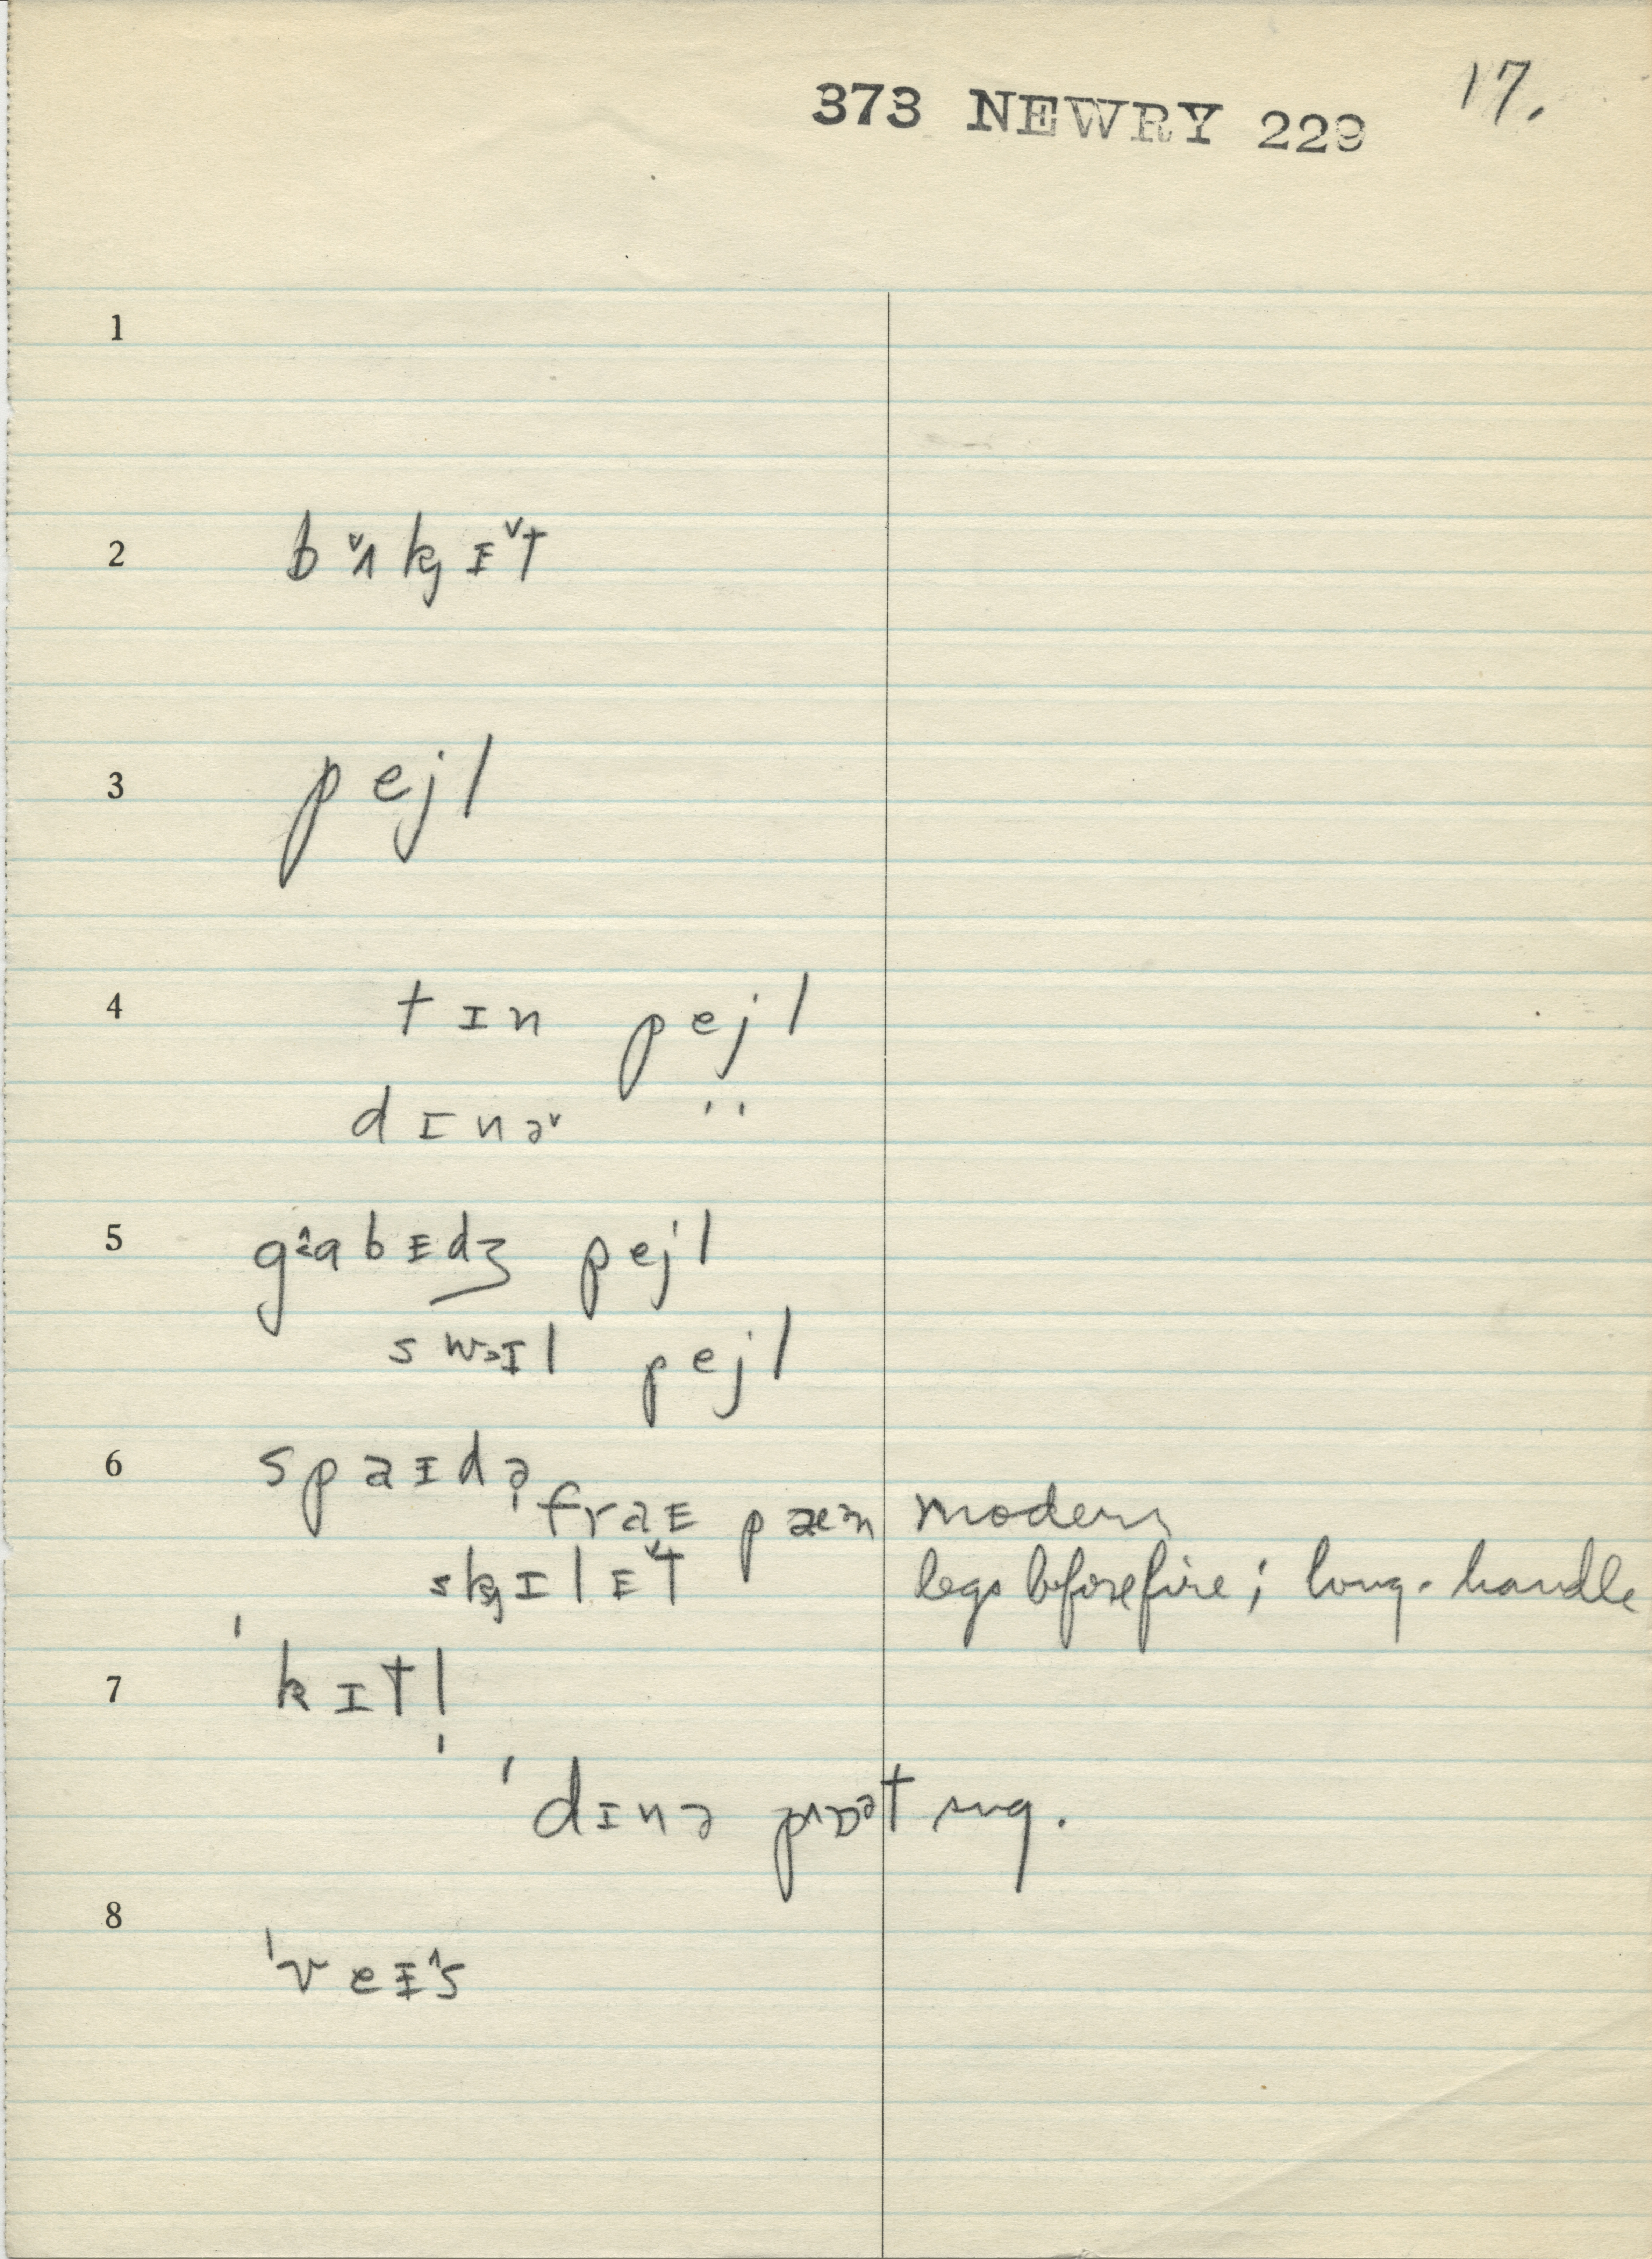 17.
373 NEWRY 229
1
2 bˇʌkj ɪˇt
3 pejl
4 tɪn pejl
dɪnəˇ ''
5 gaˆbɪdʒ pejl
swɜɪl pejl
6 spaɪdə
fraɪ pæən modern
skjɪlɪˇt legs before fire; long-handle
7 ' kɪtl̩
' dɪnə pɒət sug.
8 'veɪˆs